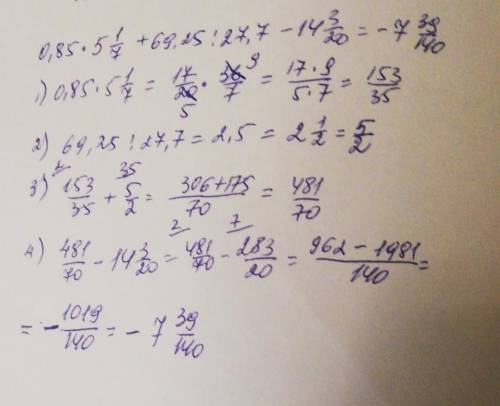 0,85 · 5 1/7 + 69,25 : 27,7 − 14 3/20 = − 7 39/140
1) 0,85 · 5 1/7 = 17/20 5 · 36/7 9 = 17·9/5·7 = 153/35
2) 69,25 : 27,7 = 2,5 = 2 1/2 = 5/2
3) 153/35 + 5/2 35 = 306+175/70 = 481/70
4) 481/70 − 14 3/20 = 481/70 2 − 283/20 7 = 962 − 1981/140 =
= − 1019/140 = − 7 39/140